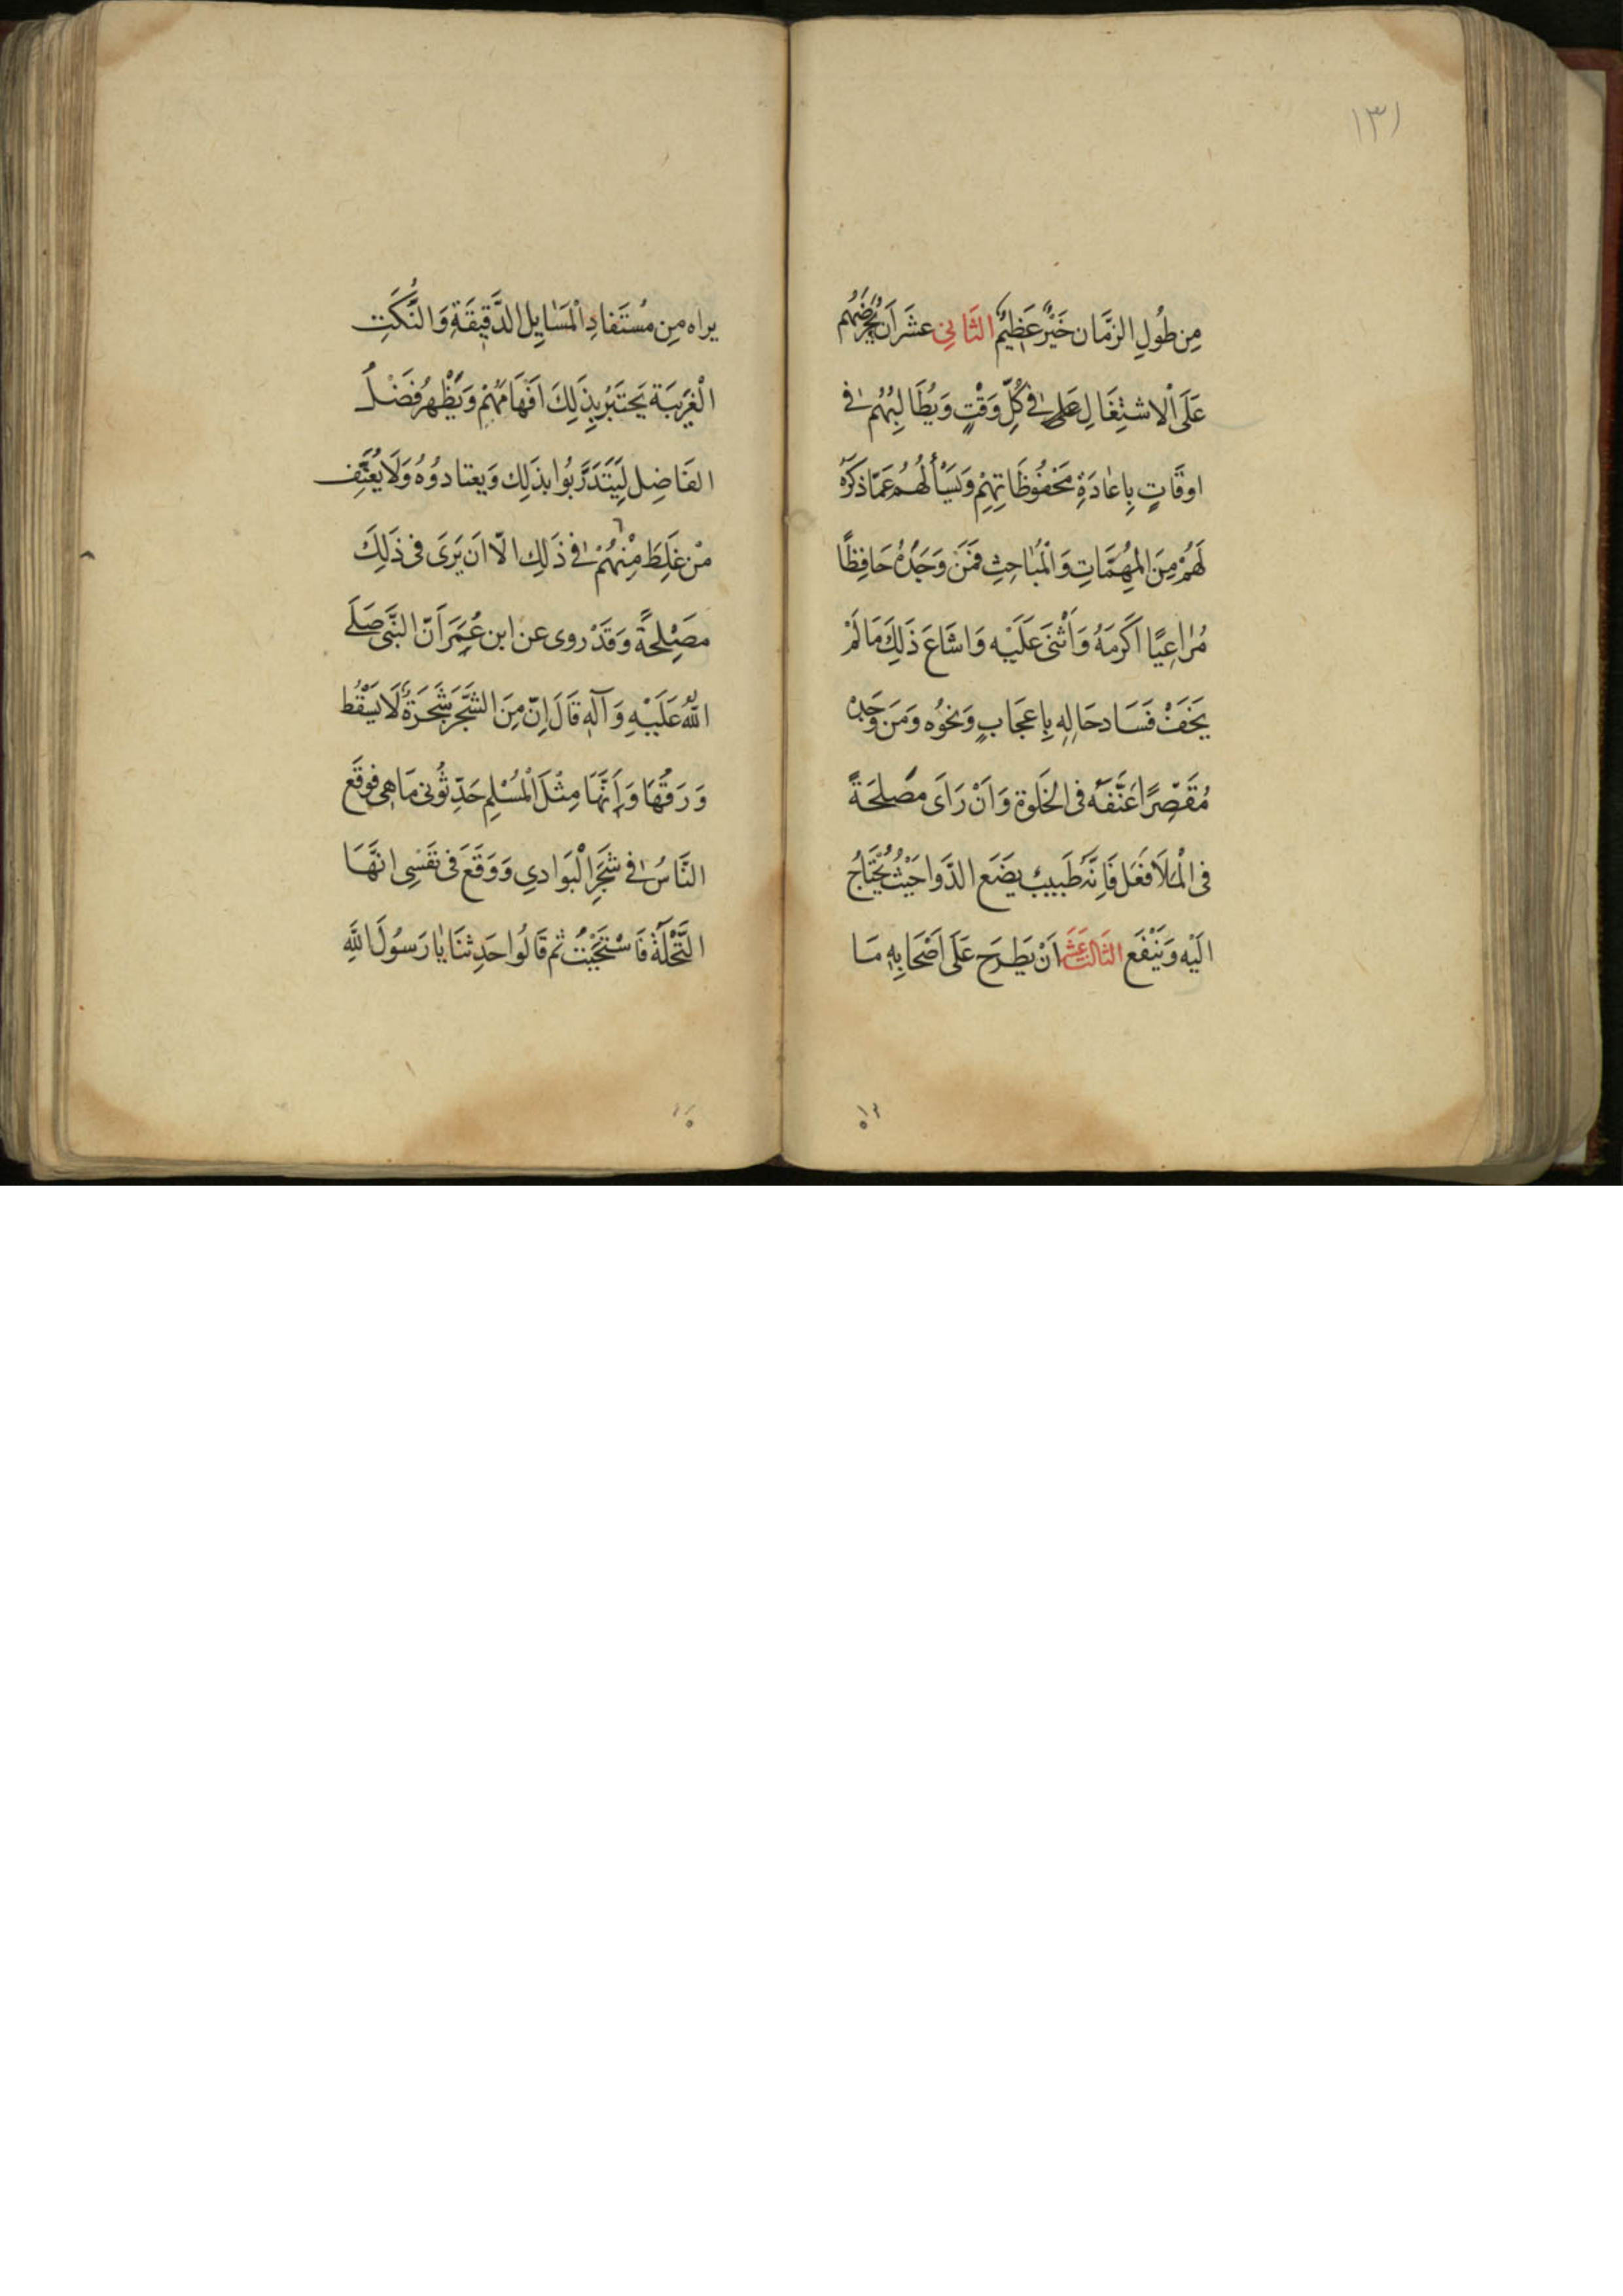 ١٣١
مِن طُولِ الزَّمَان خَيْرٌ عَظِيمٌ الثَّانِي عَشَرَ اَن يُحَرِّضَهُم
عَلَى الْاشتِغَالِ فِي كُلِّ وَقْتٍ وَيُطَالِبُهُم فِي
اوقَاتٍ بِاِعَادَةِ مَحْفُوظَاتِهِمْ وَيَسْأَلُهُم عَمَّا ذَكَرَهُ
لَهُمْ مِنَ المُهِمَّاتِ وَالْمَبَاحِثِ فَمَنْ وَجَدَهُ حَافِظًا
مُرَاعِيًا اَكرَمَهُ وَأَثْنَى عَلَيْه وَاشَاعَ ذَلِكَ مَا لَمْ
يَخَفْ فَسَاد حَالِهِ بِاِعجَابٍ وَنَحْوُه وَمَن وَجَدَهُ
مُقَصِّرًا عَنَّفَه فى الخَلوة وَانْ رَاَى مَصْلِحَةً
فى الْمَلَأ فَعَل فَاِنَّهُ طَبيب يضَع الدَّوَا حَيْثُ يُحْتَاجُ
الَيْه وَيَنْفَع الثَالث عَشَر اَنْ يَطرَحَ عَلَى اَصْحَابِهِ مَا
يراه مِن مُسْتَفادِ الْمَسَايِل الدَّقِيقَةِ وَالنُّكَتِ
الْغَرِيبَة يَختَبِرُ بِذَلِكَ اَفْهَامَهُمْ وَيُظْهِرُ فَضْلَ
الفَاضِل لِيَتَدَرَّبُوا بذَلِك وَيعتادُوُهُ وَلَا يُعَنِّف
مَنْ غَلِطَ مِنْهُمْ فِي ذَلِك الّا اَن يَرَى فى ذَلِكَ
مصَلِحَةً وَقَدْ روى عن ابن عُمَرَ اَنّ النَّبىَّ صَلَّى
اللّٰهُ عَلَيْهِ وَآلِهِ قَالَ اِنّ مِنَ الشَّجَرِ شَجَرَةً لَا يَسْقُط
وَرَقُهَا وَاِنَّهَا مِثْلَ الْمُسْلِمِ حَدِّثُونى مَا هِى فوقَع
النَّاسُ فِي شَجَرِ الْبَوَادِي وَوَقَعَ فى نَفْسِى انَّهَا
النَّخْلَةُ فَاسْتَحْيَيْتُ ثم قَالُوا حَدِثنَا يَا رَسُولَ اللَّهِ